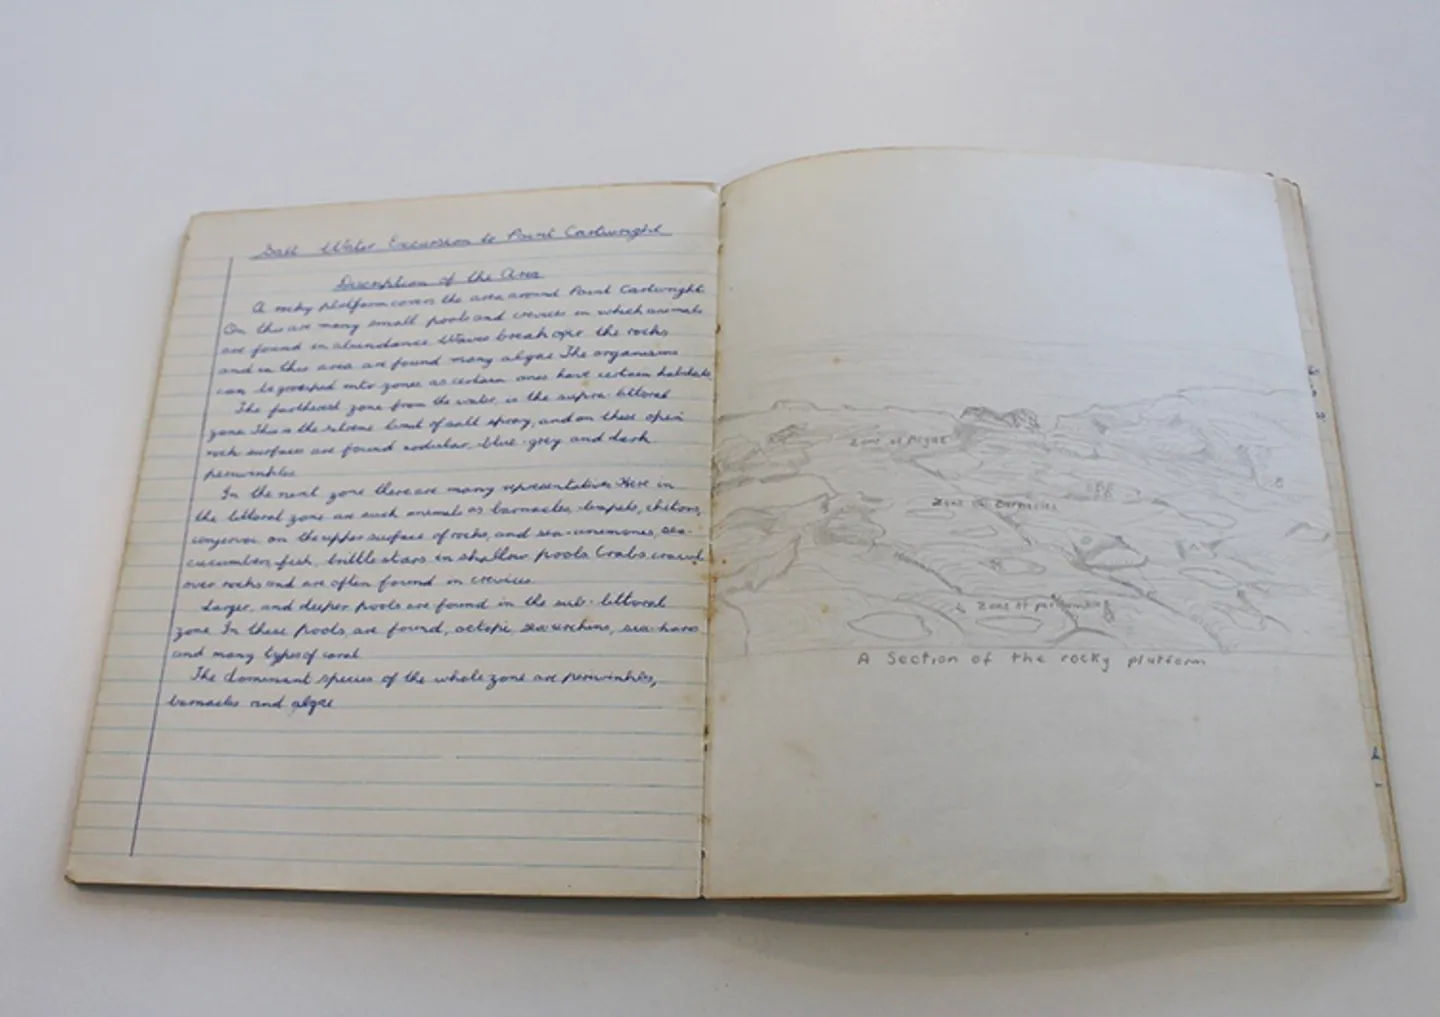 Salt Water Excursion to Point Cartwright
Description of the Area
A rocky platform covers the area around Point Cartwright.
On this are many small pools and crevices in which animals
are found in abundance. Waves break over the rocks
and in this area are found many algae. The organisms
can be grouped into zones as certain ones have certain habitats
The furtherest zone from the water, is the supra-littoral
zone. This is the extreme limit of salt spray, and on these open
rock surfaces are found nodular, blue-grey and dark
periwinkles.
In the next zone there are many representatives. Here in
the littoral zone are such animals as barnacles, limpets, chitons,
on the upper surface of rocks, and sea-anemones, sea-
cucumbers, fish, brittle stars in shallow pools. Crabs crawl
over rocks and are often found in crevices.
Larger, and deeper pools are found in the sub-littoral
zone. In these pools, are found, octopi, sea urchins, sea-hares
and many types of coral.
The dominant species of the whole zone are periwinkles,
barnacles and algae
Zone of Algae
Zone of Barnacles
Zone of periwinkles
A Section of the rocky platform